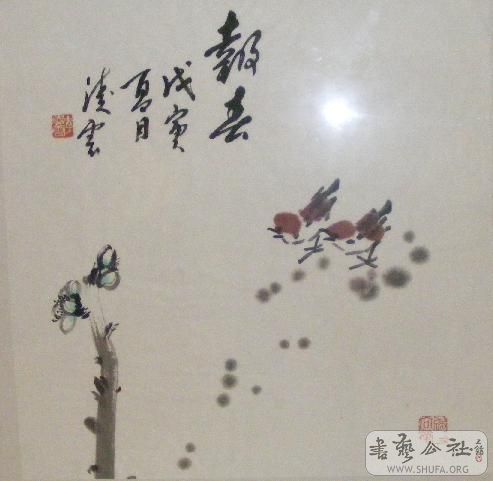 報春
戊寅
夏日
凌雲
書藝公社
WWW.SHUFA.ORG